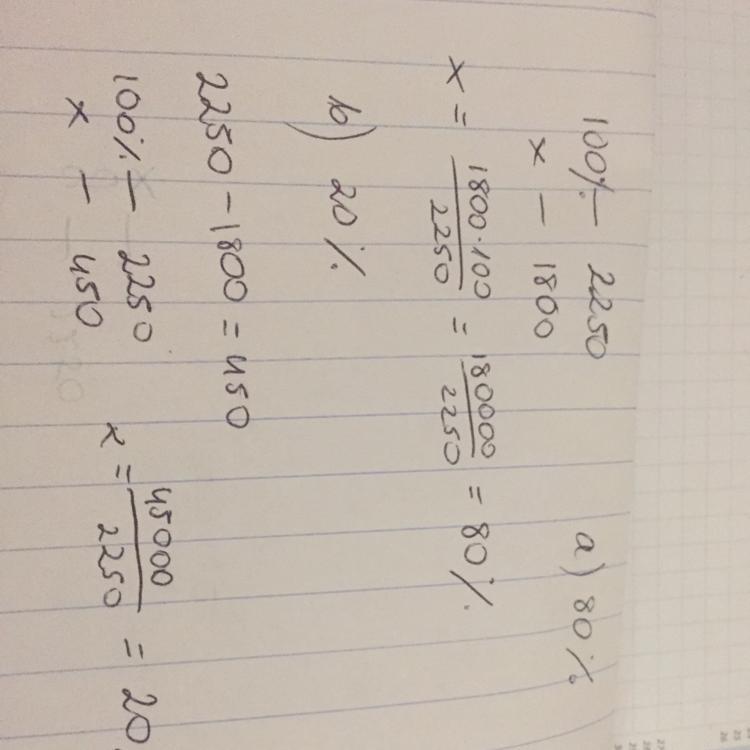 100% – 2250
x – 1800
a) 80%
x = 1800·100/2250 = 180000/2250 = 80%
b) 20%
2250 – 1800 = 450
100% – 2250
x – 450
x = 45000/2250 = 20